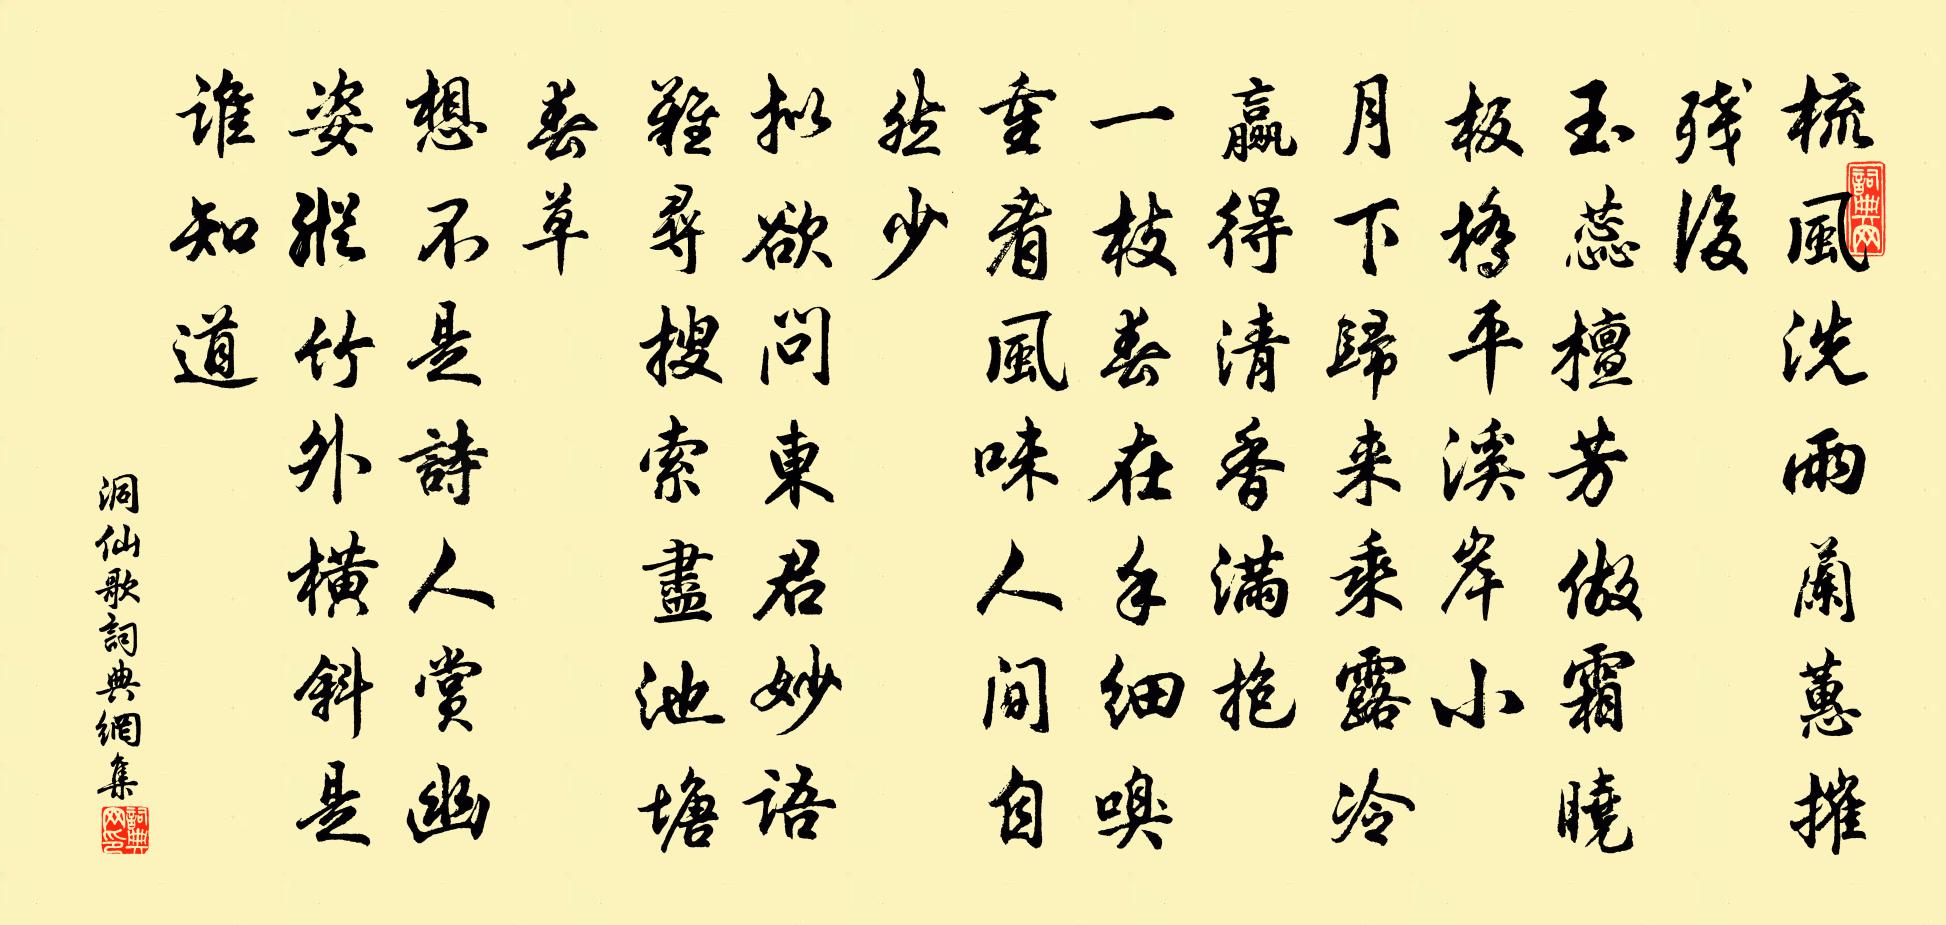 梳風洗雨蘭蕙摧
残後
玉蕊檀芳做霜曉
板橋平溪岸小
月下歸来乘露冷
贏得清香滿抱
一枝春在手細嗅
重看風味人间自
然少
拟欲问東君妙語
難尋搜索盡池塘
春草
想不是詩人賞幽
姿縱竹外横斜是
谁知道
洞仙歌詞典網集
詞典网
詞典网印